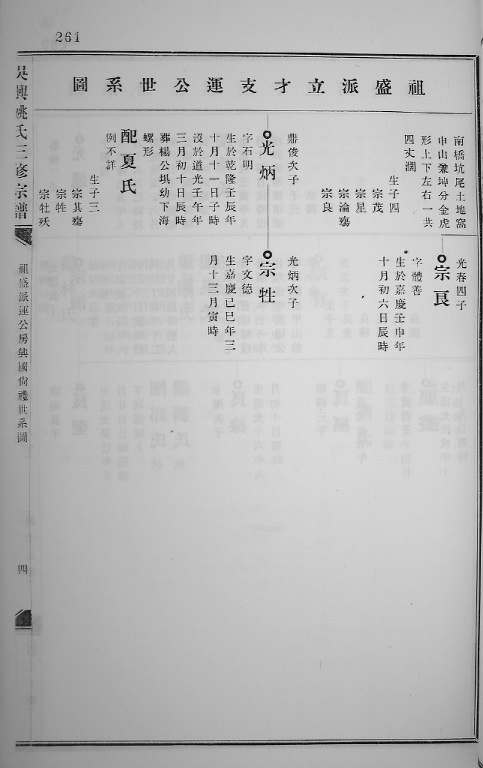 261
祖盛派立才支運公世系圖
吳興姚氏三修宗譜
祖盛派運公房興國衙禮世系圖
四
南橋坑尾土地窩
申山兼坤分金虎
形上下左右一共
四丈濶
生子四
宗茂
宗星
宗淪殤
宗良
光春四子
宗良
字體善
生於嘉慶壬申年
十月初六日辰時
鼎俊次子
光炳
字石明
生於乾隆壬辰年
十月十一日子時
沒於道光壬午年
三月初十日辰時
葬楊公垻幼下海
螺形
配夏氏
例不詳
生子三
宗其殤
宗牲
宗牡殀
光炳次子
宗牲
字文德
生嘉慶己巳年三
月十三月寅時